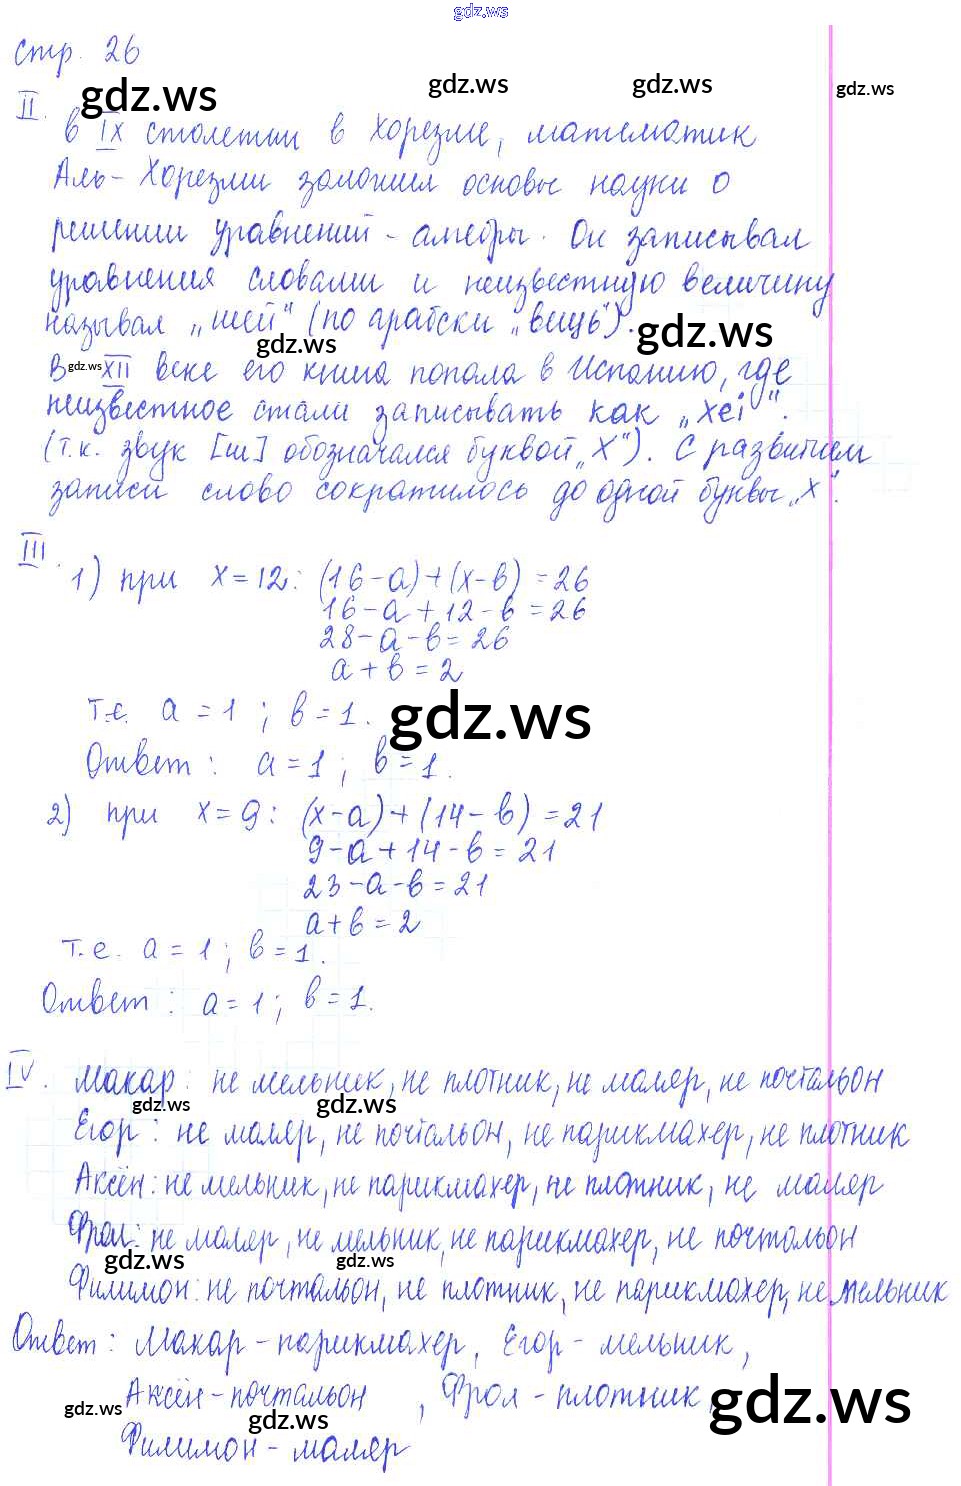 gdz.ws
стр. 26
gdz.ws gdz.ws gdz.ws gdz.ws
II. В IX столетии в Хорезме, математик
Аль-Хорезми заложил основы науки о
решении уравнений - алгебры. Он записывал
уравнения словами и неизвестную величину
называл „шей" (по арабски „вещь").
gdz.ws gdz.ws
В gdz.ws XII веке его книга попала в Испанию, где
неизвестное стали записывать как „хei".
(т.к. звук [ш] обозначался буквой „X"). С развитием
записи слово сократилось до одной буквы „X".
III.
1) при x=12: (16-a)+(x-в)=26
16-a+12-в=26
28-a-в=26
a+в=2
т.е. a=1; в=1.
gdz.ws
Ответ: a=1; в=1.
2) при x=9: (x-a)+(14-в)=21
9-a+14-в=21
23-a-в=21
a+в=2
т.е. a=1; в=1.
Ответ: a=1; в=1.
IV. Макар: не мельник, не плотник, не маляр, не почтальон
gdz.ws gdz.ws
Егор: не маляр, не почтальон, не парикмахер, не плотник
Аксён: не мельник, не парикмахер, не плотник, не маляр
Фрол: не маляр, не мельник, не парикмахер, не почтальон
gdz.ws gdz.ws
Филимон: не почтальон, не плотник, не парикмахер, не мельник
Ответ: Макар - парикмахер, Егор - мельник,
Аксён - почтальон, Фрол - плотник,
gdz.ws gdz.ws gdz.ws
Филимон - маляр